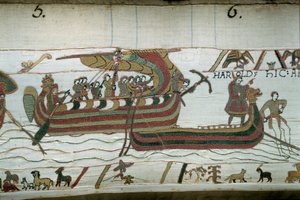 5. 6.
HAROLD: hIC: